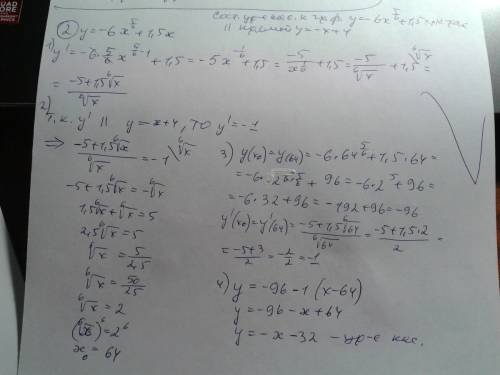 QUADRO
Сост. ур-е кас. к граф. y=-6x^(5/6)+1,5x,
|| прямой y=-x+4
② y=-6x^(5/6)+1,5x
1) y'=-6·5/6 x^(5/6-1)+1,5=-5x^(-1/6)+1,5=-5/x^(1/6)+1,5=-5/⁶√x+1,5 \⁶√x=
=(-5+1,5⁶√x)/⁶√x
2) т.к. y' || y=-x+4, то y'=-1
⇒ (-5+1,5⁶√x)/⁶√x=-1 \⁶√x
-5+1,5⁶√x=-⁶√x
1,5⁶√x+⁶√x=5
2,5⁶√x=5
⁶√x=5/2,5
⁶√x=50/25
⁶√x=2
(⁶√x)⁶=2⁶
x₀=64
3) y(x₀)=y(64)=-6·64^(5/6)+1,5·64=
=-6·2^(6·5/6)+96=-6·2⁵+96=
=-6·32+96=-192+96=-96
y'(x₀)=y'(64)=(-5+1,5⁶√64)/⁶√64=(-5+1,5·2)/2=
=(-5+3)/2=-2/2=-1
4) y=-96-1(x-64)
y=-96-x+64
y=-x-32 - ур-е кас.